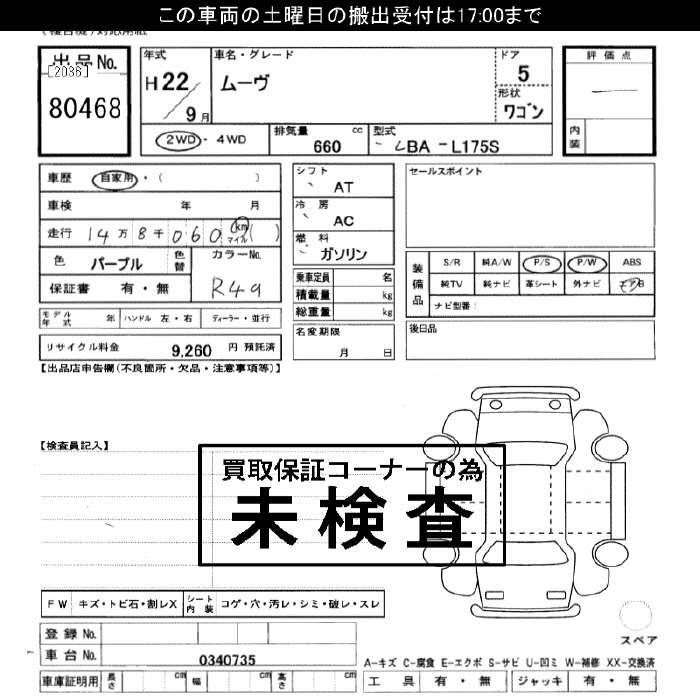 この車両の土曜日の搬出受付は17:00まで
出品No.
[2036]
80468
年式
H22/9月
車名・グレード
ムーヴ
ドア
5
形状
ワゴン
評価点
内装
2WD・4WD
排気量 cc
660
型式
LBA-L175S
車歴 自家用・( )
車検 年 月
走行 14万8千060 km マイル ( )
色 パープル 色替
カラーNo.
R49
保証書 有・無
シフト
AT
冷房
AC
燃料
ガソリン
セールスポイント
装備品
S/R 純A/W P/S P/W ABS
純TV 純ナビ 革シート 外ナビ エアB
ナビ型番:
乗車定員 名
積載量 kg
総重量 kg
モデル年式 年 ハンドル 左・右 ディーラー・並行
名変期限
月 日
後日品
リサイクル料金 9,260 円 預託済
【出品店申告欄(不良箇所・欠品・注意事項等)】
【検査員記入】
買取保証コーナーの為
未検査
FW キズ・トビ石・割レX シート内装 コゲ・穴・汚レ・シミ・破レ・スレ
登録No.
車台No. 0340735
車庫証明用 長さ cm 幅 cm 高さ cm
スペア
A-キズ C-腐食 E-エクボ S-サビ U-凹ミ W-補修 XX-交換済
工具 有・無 ジャッキ 有・無